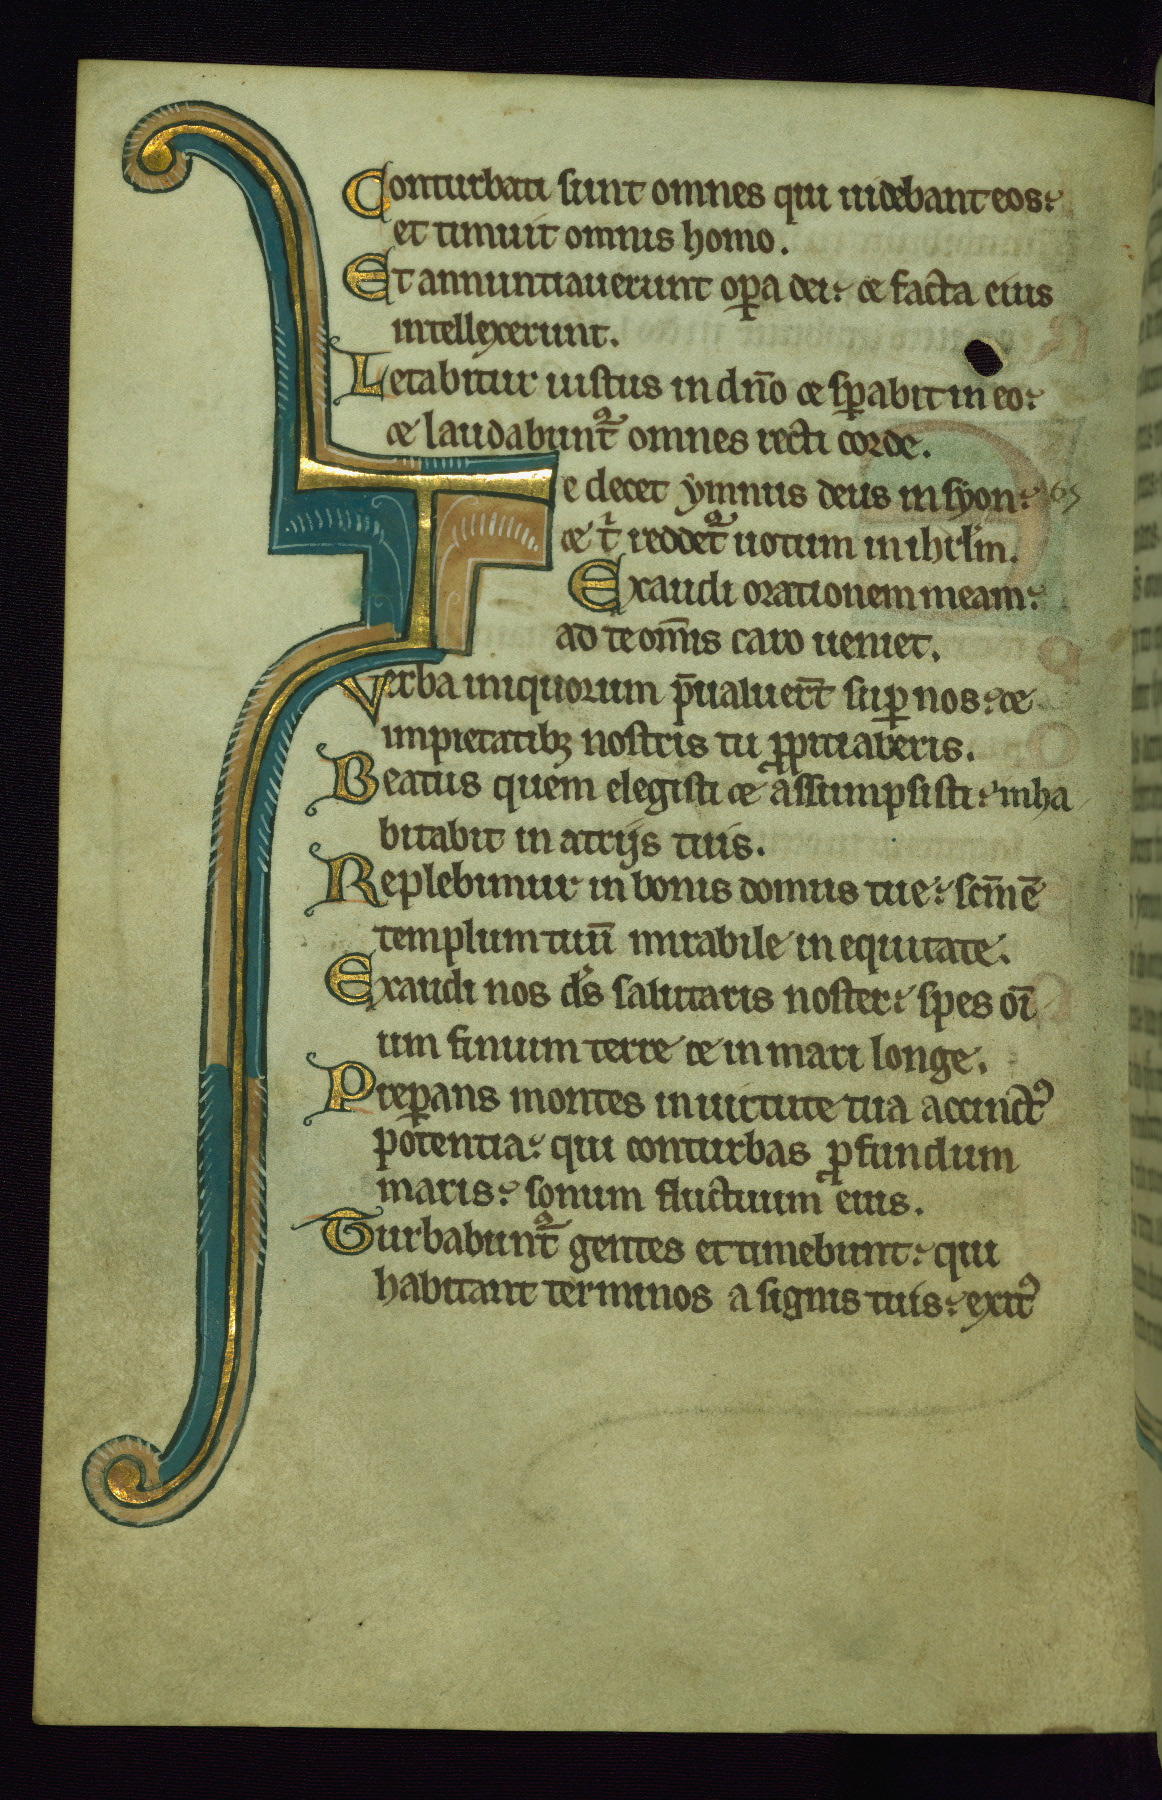 Conturbati sunt omnes qui uidebant eos:
et timuit omnis homo.
Et annuntiauerunt oꝑa dei: ⁊ facta eius
intellexerunt.
Letabitur iustus in dn̄o ⁊ sꝑabit in eo:
⁊ laudabunt᷑ omnes recti corde.
Te decet ẏmnus deus in sẏon: 65
⁊ tⁱ reddet᷑ uotum in ihrl̄m.
Exaudi orationem meam:
ad te om̄is caro ueniet.
Verba iniquorum p̄ualuer̄t suꝑ nos: ⁊
impietatibꝫ nostris tu ꝓpitiaberis.
Beatus quem elegisti ⁊ assumpsisti: inha
bitabit in atrijs tuis.
Replebimur in bonis domus tue: sc̄m ē
templum tuū mirabile in equitate.
Exaudi nos ds̄ salutaris noster: spes oī
um finium terre ⁊ in mari longe.
Preꝑans montes in uirtute tua accinctꝰ
potentia: qui conturbas ꝓfundum
maris: sonum fluctuum eius.
Turbabunt᷑ gentes et timebunt: qui
habitant terminos a signis tuis: exitꝰ